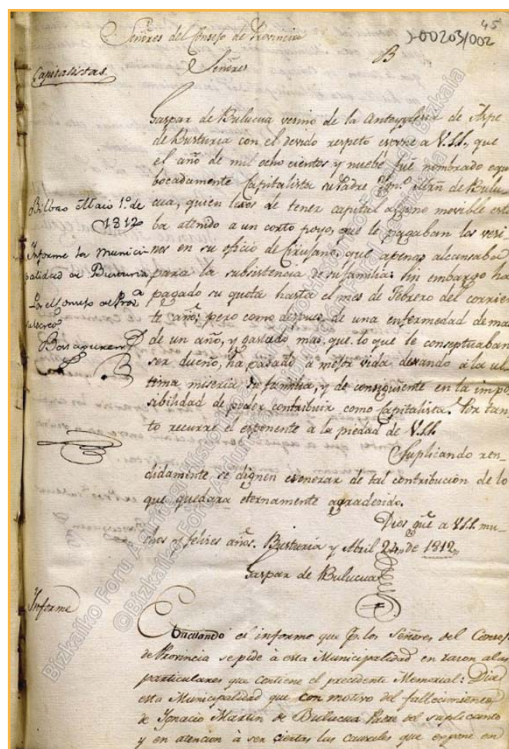 45
J-00203/002
Señores del Consejo de Provincia
B
Señores
Capitalistas.
Gaspar de Bulucua vecino de la Anteyglesia de Axpe
de Busturia con el devido respeto expone a V.SS. que
el año de mil ocho cientos y nuebe fué nombrado equi
bocadamente Capitalista su Padre Ign.º Mrn de Bulu
cua, quien lexos de tener capital alguno movible esta
ba atenido a un corto poyo, que le pagaban los veci
nos en su oficio de Cirujano, que apenas alcansaba
para la subsistencia de su familia: sin embargo ha
pagado su quota hasta el mes de Febrero del corrien
te año; pero como despues de una enfermedad de mas
de un año, y gastado mas, que lo que le conceptuaban
ser dueño, ha pasado a mejor vida dexando à la ul
tima miseria su familia, y de consiguiente en la impo
sibilidad de poder contribuir como Capitalista. Por tan
to recurre el exponente a la piedad de V.SS.
Suplicando ren-
didamente se dignen exonerar de tal contribucion de lo
que quedara eternamente agradecido.
Dios gue a V.SS. mu-
chos y felices años. Busturia y Abril 24 de 1812
Gaspar de Bulucua
Bilbao Maio 1º de
1812
Informe la Munici
palidad de Busturia
El Consejo de Prov.
Informe
Evacuando el informe que p.r los Señores del Consejo
de Provincia se pide à esta Municipalidad en razon alas
particulares que contiene el precedente Memorial: Dice
esta Municipalidad que con motivo del fallecimiento
de Ignacio Martin de Bulucua Padre del suplicante
y en atencion à ser ciertas las causales que expone en
©Bizkaiko Foru Artxibo Historikoa